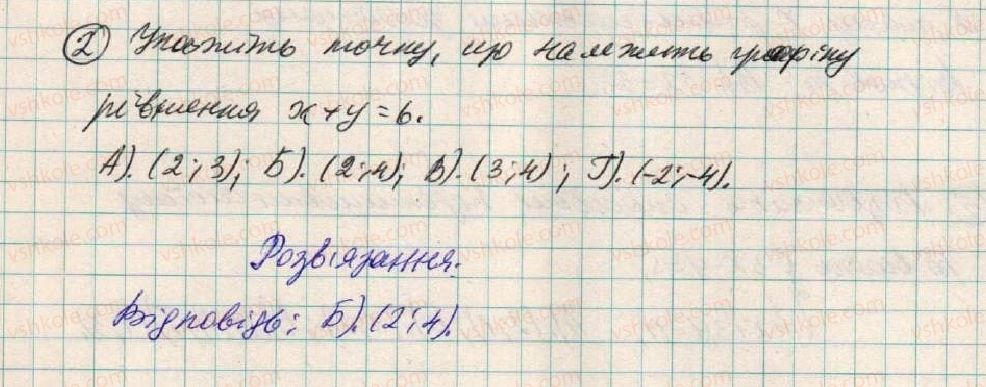 2 Укажіть точку, що належить графіку
рівняння x + y = 6.
А). (2; 3); Б). (2; 4); В). (3; 4); Г). (-2; -4).
Розв'язання.
Відповідь: Б). (2; 4).